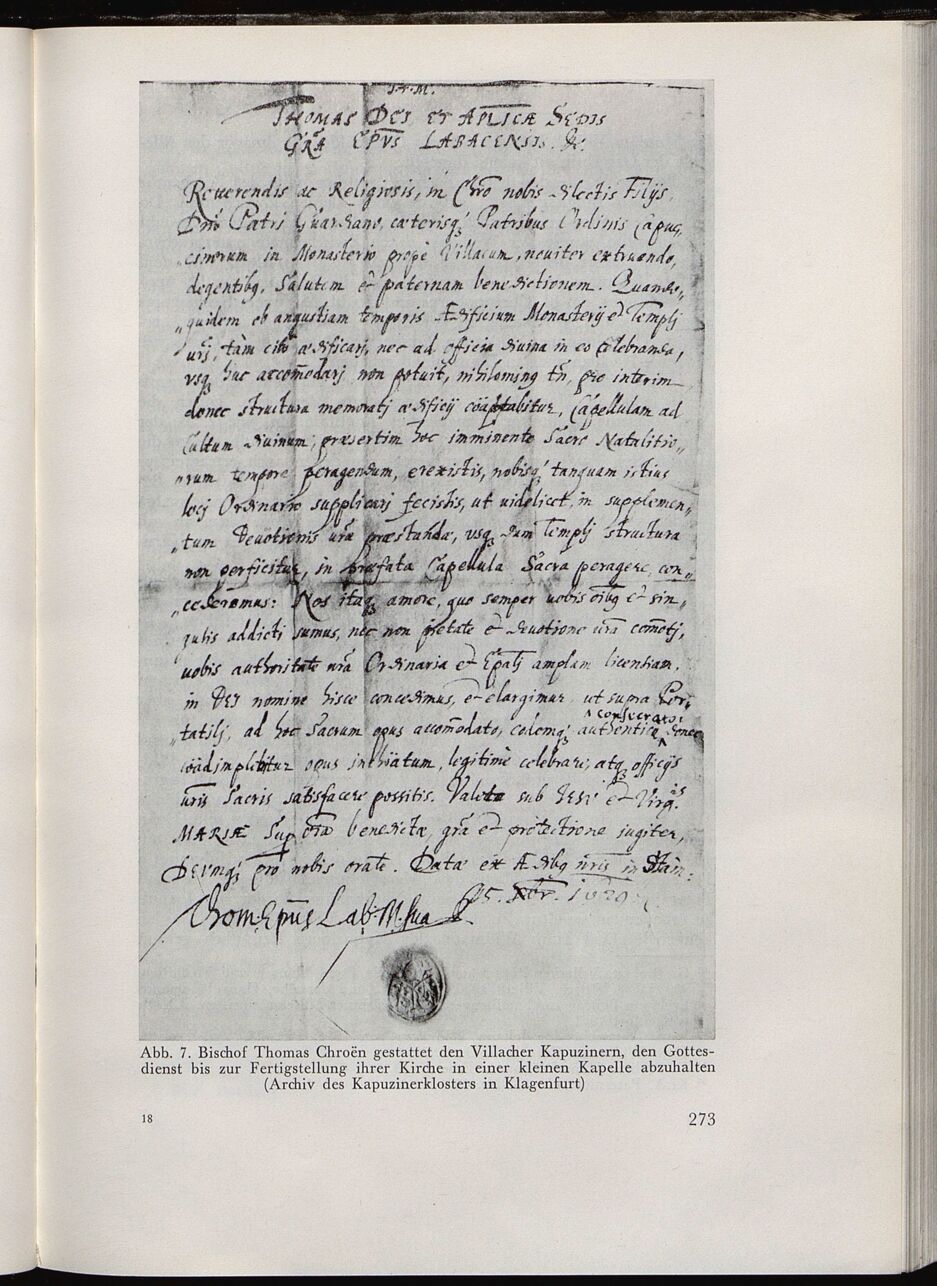 J. + M.
THOMAS DEI ET APLICÆ SEDIS
GRA EPVS LABACENSIS. &c.
Reuerendis ac Religiosis, in Chro nobis dilectis Filijs,
Dno Patri Guardiano, cæterisq; Patribus Ordinis Capuc,
„cinorum in Monasterio propè Villacum, nouiter extruendo,
degentibq. Salutem et paternam benedictionem. Quando„
„quidem ob angustiam temporis Ædificium Monasterij et Templj
urj, tàm citò ædificarj, nec ad officia diuina in eo celebranda,
vsq; huc accomodarj non potuit, nihilominq tn, pro interim
donec structura memoratj ædificij coaptabitur, Capellulam ad
Cultum diuinum, præsertim hoc imminente Sacro Natalitio„
„rum tempore peragendum, erexistis, nobisq; tanquam istius
locj Ordinario supplicarj fecistis, ut uidelicet, in supplemen„
„tum Deuotionis uræ præstandæ, vsq; dum Templj structura
non perficitur, in præfata Capellula Sacra peragere, con„
„cederemus: Nos itaq; amore, quo semper uobis oibq et sin„
gulis addicti sumus, nec non pietate et deuotione ura comotj,
uobis authoritate nra Ordinaria et Epalj amplam licentiam,
in DEI nomine hisce concedimus, et elargimur ut supra Por„
consecrato;
„tatilj, ad hoc Sacrum opus accomodato, eodemq; authenticè donec
coadimplebitur opus inchoatum, legitimè celebrare, atq; officijs
uris Sacris satisfacere possitis. Valete sub IESV et Virg.is
MARIÆ Sup oia benedictæ, gra et protectione iugiter,
DEVMq; pro nobis orate. Data ex Ædibq nris in Stain:
15. Xbr. 1629.
Thom Epus Lab: M. sua
Abb. 7. Bischof Thomas Chroën gestattet den Villacher Kapuzinern, den Gottes-
dienst bis zur Fertigstellung ihrer Kirche in einer kleinen Kapelle abzuhalten
(Archiv des Kapuzinerklosters in Klagenfurt)
18 273